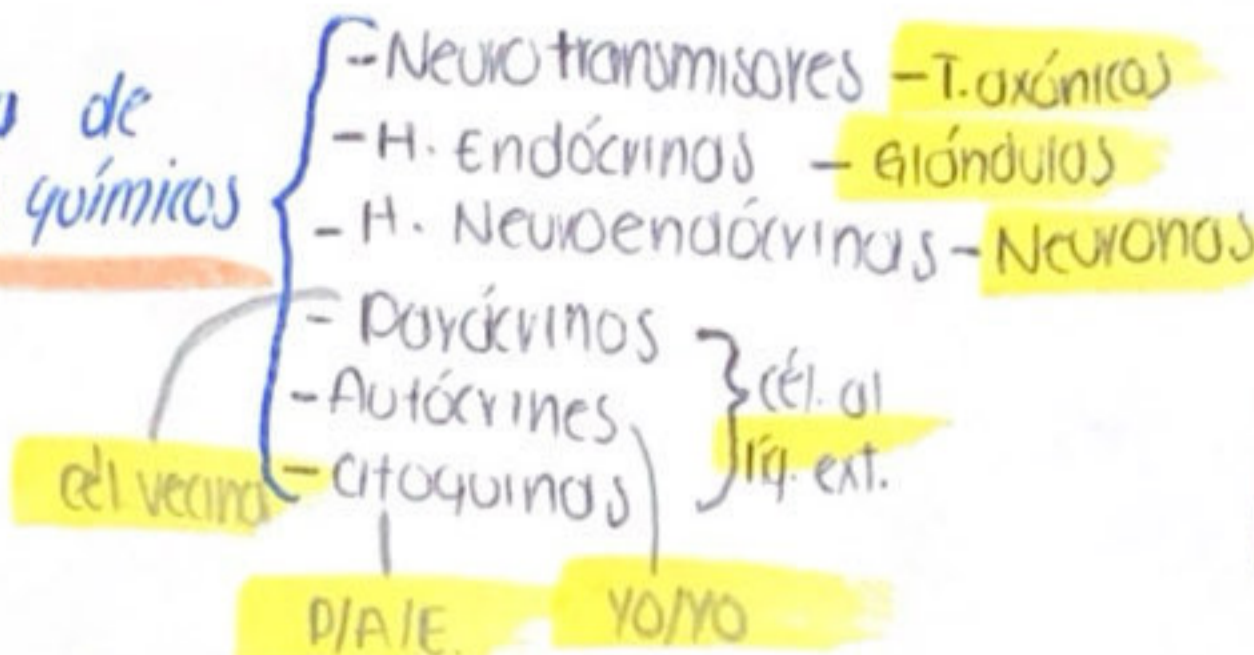 de
químicos
- Neurotransmisores - T. axónicas
- H. Endócrinas - Glándulas
- H. Neuroendócrinas - Neuronas
- Parácrinos
- Autócrines
- Citoquinas
cél. al
líq. ext.
cél vecina
P/A/E.
YO/YO